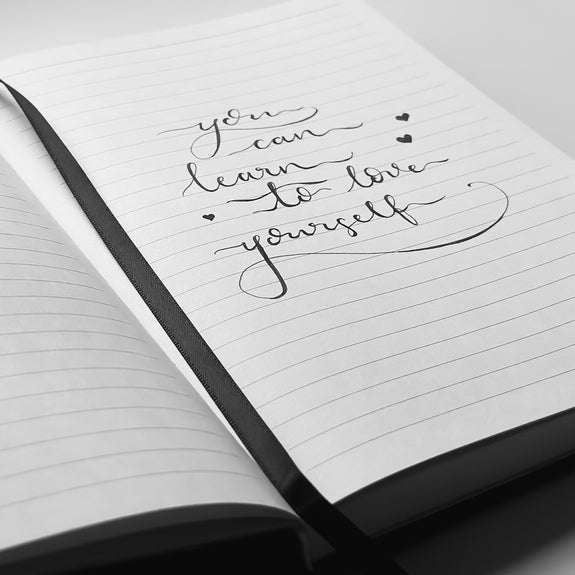 you
can
learn
to love
yourself